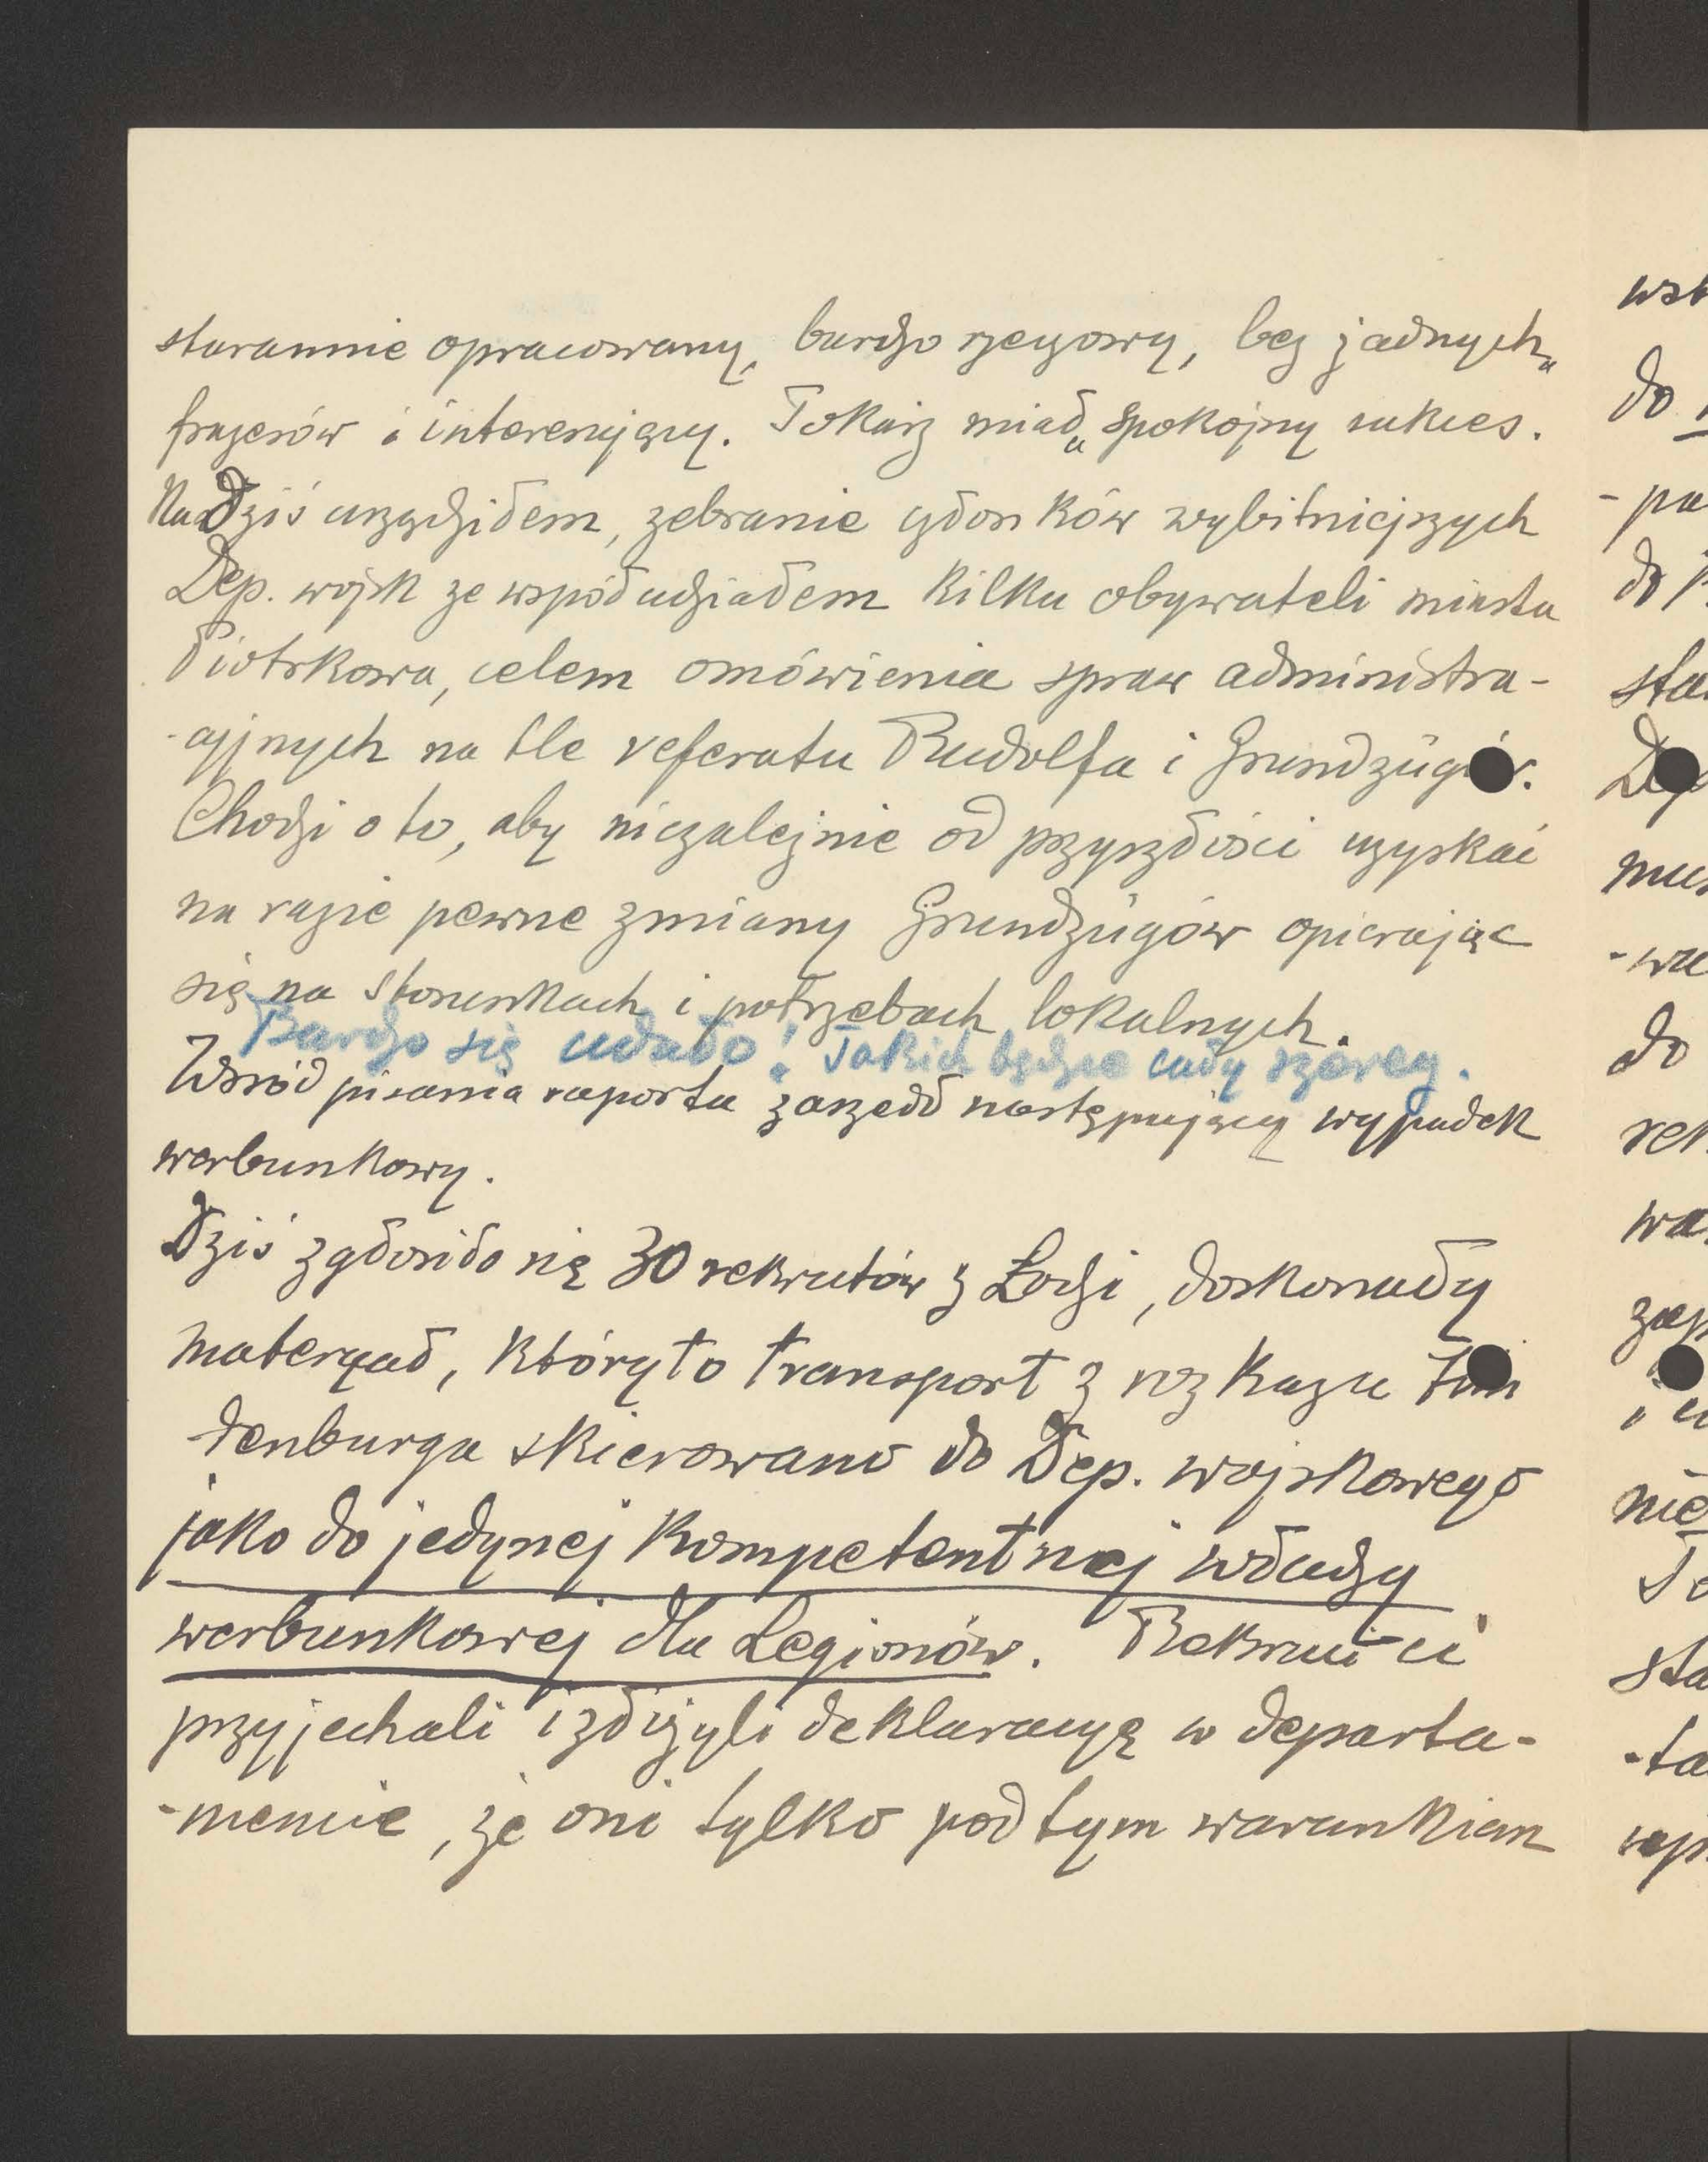 starannie opracowany, bardzo rzeczowy, bez żadnych
frazesów i interesujący. Tokarz miał „spokojny sukces.
Na dziś urządziłem, zebranie członków wybitniejszych
Dep. wojsk ze współudziałem kilku obywateli miasta
Piotrkowa, celem omówienia spraw administra-
-cyjnych na tle referatu Rudolfa i Grundzügów.
Chodzi o to, aby niezależnie od przyszłości uzyskać
na razie pewne zmiany Grundzügów opierając
się na stosunkach i potrzebach lokalnych.
Bardzo się udało! Takich będzie cały szereg.
Wśród pisania raportu zaszedł następujący wypadek
werbunkowy.
Dziś zgłosiło się 30 rekrutów z Łodzi, doskonały
materyał, który to transport z rozkazu
denburga skierowano do Dep. wojskowego
jako do jedynej kompetentnej władzy
werbunkowej dla Legionów. Rekruci ci
przyjechali i złożyli deklaracyę w departa-
-mencie, że oni tylko pod tym warunkiem
wst
do
-pa
do
sta
Dep
mus
-wa
do
rek
wa
zap
nie
sta
-ta